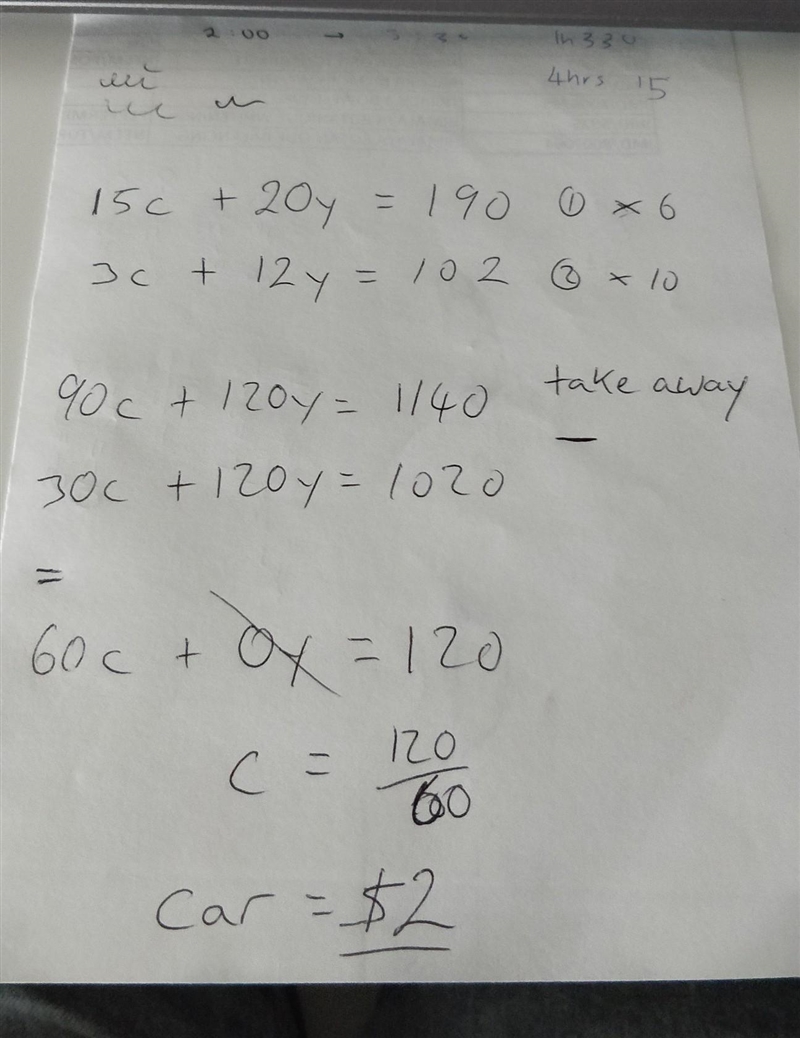 2:00 →
4hrs 15
15c + 20y = 190 ① × 6
3c + 12y = 102 ② × 10
90c + 120y = 1140 take away
—
30c + 120y = 1020
=
60c + 0y = 120
c = 120/60
Car = $2